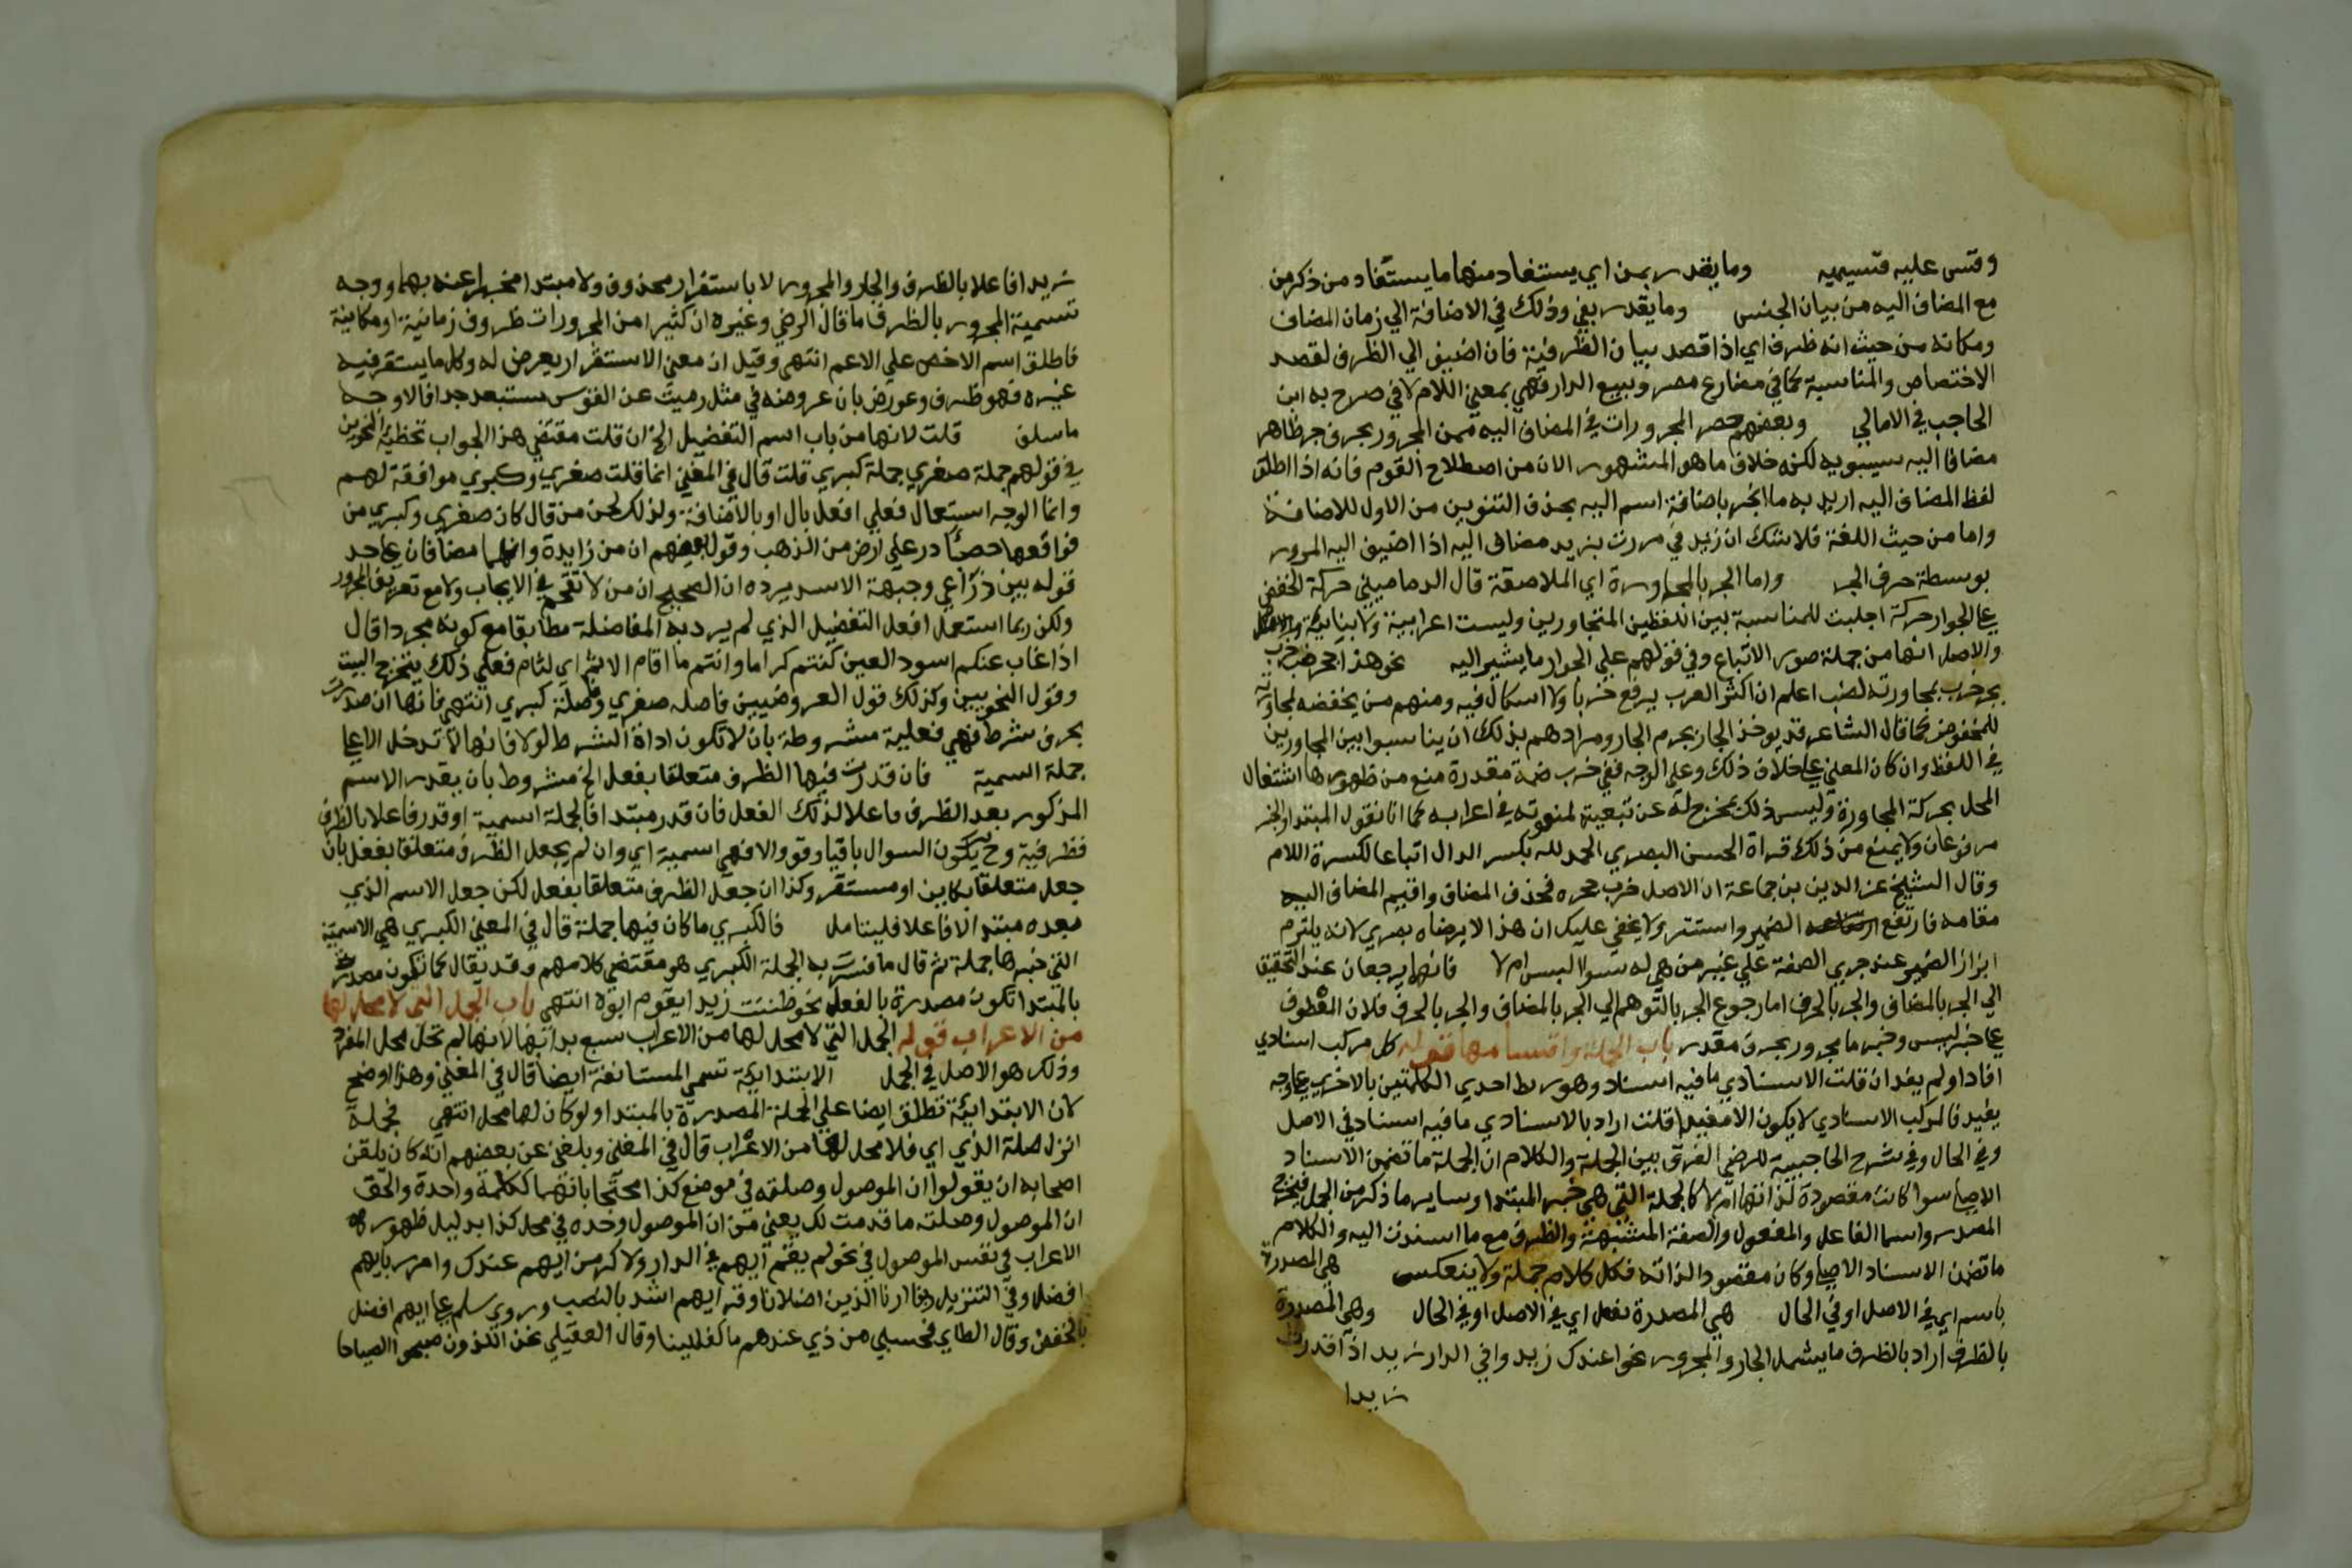 وقس عليه قسيميه وما يقدر بمن اي يستفاد منها ما يستفاد من ذكر من
مع المضاف اليه من بيان الجنس وما يقدر بفي وذلك في الاضافة الي زمان المضاف
ومكانه من حيث انه ظرف اي اذا قصد بيان الظرفية فان اضيف الي الظرف لقصد
الاختصاص والمناسبة كما في مضارع مصر وبيع الدار فهي بمعني اللام لا في صرح به ابن
الحاجب في الامالي وبعضهم حصر المجرورات في المضاف اليه فمن المجرور بحرف جر ظاهر
مضافا اليه سيبويه لكنه خلاف ما هو المشهور الان من اصطلاح القوم فانه اذا اطلق
لفظ المضاف اليه اريد به ما انجر باضافة اسم اليه بحذف التنوين من الاول للاضافة
واما من حيث اللغة فلا شك ان زيد في مررت بزيد مضاف اليه اذا اضيف اليه المرور
بوسطة حرف الجر واما الجر بالمجاورة اي الملاصقة قال الدماميني حركة الخفض
علي الجوار حركة اجلبت للمناسبة بين اللفظين المتجاورين وليست اعرابية ولا بنائية
والاصل انها من جملة صور الاتباع وفي قولهم علي الجوار ما يشير اليه نحو هذا جحر ضب خرب
بجر خرب بمجاورته لضب اعلم ان اكثر العرب يرفع خربا ولا اسكال فيه ومنهم من يخفضه لمجاورته
للمخفوض كما قال الشاعر قد يوخذ الجار بجرم الجار ومرادهم بذلك ان يناسبوا بين المجاورين
في اللفظ وان كان المعني علي خلاف ذلك وعلي الوجه ففي خرب ضمة مقدرة منع من ظهورها اشتغال
المحل بحركة المجاورة وليس ذلك بمخرج له عن تبعيته لمنعوته في اعرابه كما انا نقول المبتدا والخبر
مرفوعان ولا يمنع من ذلك قراة الحسن البصري الحمد لله بكسر الدال اتباعا لكسرة اللام
وقال الشيخ عز الدين بن جماعة ان الاصل خرب جحره فحذف المضاف واقيم المضاف اليه
مقامه فارتفع الضمير واستتر ولا يخفي عليك ان هذا لا يرضاه بصري لانه يلتزم
ابراز الضمير عند جري الصفة علي غير من هي له سوا البس ام لا فانهما يرجعان عند التحقيق
الي الجر بالمضاف والجر بالحرف اما رجوع الجر بالتوهم الي الجر بالمضاف والجر بالحرف فلان العطوف
علي خبر ليس وخبر ما مجرور بحرف مقدر باب الجملة واقسامها قوله كل مركب اسنادي
افاد او لم يفد ان قلت الاسنادي ما فيه اسناد وهو ربط احدي الكلمتين بالاخري علي وجه
يفيد فالمركب الاسنادي لا يكون الا مفيدا قلت اراد بالاسنادي ما فيه اسناد في الاصل
وفي الحال وفي شرح الحاجبية للرضي الفرق بين الجملة والكلام ان الجملة ما تضمن الاسناد
الاصلي سوا كانت مقصودة لذاتها ام لا كالجملة التي هي خبر المبتدا وساير ما ذكر من الجمل فيخرج
المصدر واسما الفاعل والمفعول والصفة المشبهة والظرف مع ما اسندت اليه والكلام
ما تضمن الاسناد الاصلي وكان مقصودا لذاته فكل كلام جملة ولا ينعكس هي المصدرة
باسم اي في الاصل او في الحال هي المصدرة بفعل اي في الاصل او في الحال وهي المصدرة
بالظرف اراد بالظرف ما يشمل الجار والمجرور نحو اعندك زيد وافي الدار زيد اذا قدرت
زيدا
زيدا فاعلا بالظرف والجار والمجرور لا باستقرار محذوف ولا مبتدا مخبرا عنه بهما ووجه
تسمية المجرور بالظرف ما قال الرضي وغيره ان كثيرا من المجرورات ظروف زمانية او مكانية
فاطلق اسم الاخص علي الاعم انتهي وقيل ان معني الاستقرار يعرض له وكل ما يستقر فيه
غيره فهو ظرف وعورض بان عروضه في مثل رميت عن القوس مستبعد جدا فالاوجه
ما سلف قلت لانها من باب اسم التفضيل الخ ان قلت مقتضي هذا الجواب تخطئة النحويين
في قولهم جملة صغري جملة كبري قلت قال في المغني انما قلت صغري وكبري موافقة لهم
وانما الوجه استعمال فعلي افعل بال او بالاضافة ولذلك لحن من قال كان صغري وكبري من
فواقعها حصبا در علي ارض من الذهب وقول بعضهم ان من زايدة وانهما مضافان علي حد
قوله بين ذراعي وجبهة الاسد يرده ان الصحيح ان من لا تقحم في الايجاب ولا مع تعريف المجرور
ولكن ربما استعمل افعل التفضيل الذي لم يرد به المفاضلة مطابقا مع كونه مجردا قال
اذا غاب عنكم اسود العين كنتم كراما وانتم ما اقام الائم اي لئام فعلي ذلك يتخرج البيت
وقول النحويين وكذلك قول العروضيين فاصلة صغري وفاصلة كبري انتهي فانها ان صدرت
بحرف شرط فهي فعلية مشروطة بان لا تكون اداة الشرط لولا فانها لا تدخل الا علي
جملة اسمية فان قدرت فيها الظرف متعلقا بفعل الخ مشروط بان يقدر الاسم
المذكور بعد الظرف فاعلا لذلك الفعل فان قدر مبتدا فالجملة اسمية او قدر فاعلا بالظرف
فظرفية وح يكون السوال باقيا وقو والا فهي اسمية اي وان لم يجعل الظرف متعلقا بفعل بان
جعل متعلقا بكاين او مستقر وكذا ان جعل الظرف متعلقا بفعل لكن جعل الاسم الذي
بعده مبتدا لا فاعلا فليتامل فالكبري ما كان فيها جملة قال في المغني الكبري هي الاسمية
التي خبرها جملة ثم قال ما فسرت به الجملة الكبري هو مقتضي كلامهم وقد يقال كما تكون مصدرة
بالمبتدا تكون مصدرة بالفعل نحو ظننت زيدا يقوم ابوه انتهي باب الجمل التي لا محل لها
من الاعراب قوله الجمل التي لا محل لها من الاعراب سبع بدا بها لانها لم تحل محل المفرد
وذلك هو الاصل في الجمل الابتدايية تسمي المستانفة ايضا قال في المغني وهذا اوضح
لان الابتدايية تطلق ايضا علي الجملة المصدرة بالمبتدا ولو كان لها محل انتهي فجملة
انزل صلة الذي اي فلا محل لها من الاعراب قال في المغني وبلغني عن بعضهم انه كان يلقن
اصحابه ان يقولوا ان الموصول وصلته في موضع كذا محتجا بانهما ككلمة واحدة والحق
ان الموصول وصلته ما قدمت لك يعني من ان الموصول وحده في محل كذا بدليل ظهور
الاعراب في نفس الموصول في نحو لم يقم ايهم في الدار ولاكرمن ايهم عندك وامرر بايهم
افضل وفي التنزيل ربنا ارنا الذين اضلانا وقر ايهم اشد بالنصب وروي سلم علي ايهم افضل
بالخفض وقال الطاي فحسبي من ذي عندهم ما كفانيا وقال العقيلي نحن اللذون صبحوا الصباحا